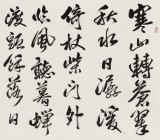 寒山轉蒼翠
秋水日潺湲
倚杖柴門外
臨風聽暮蟬
渡頭餘落日